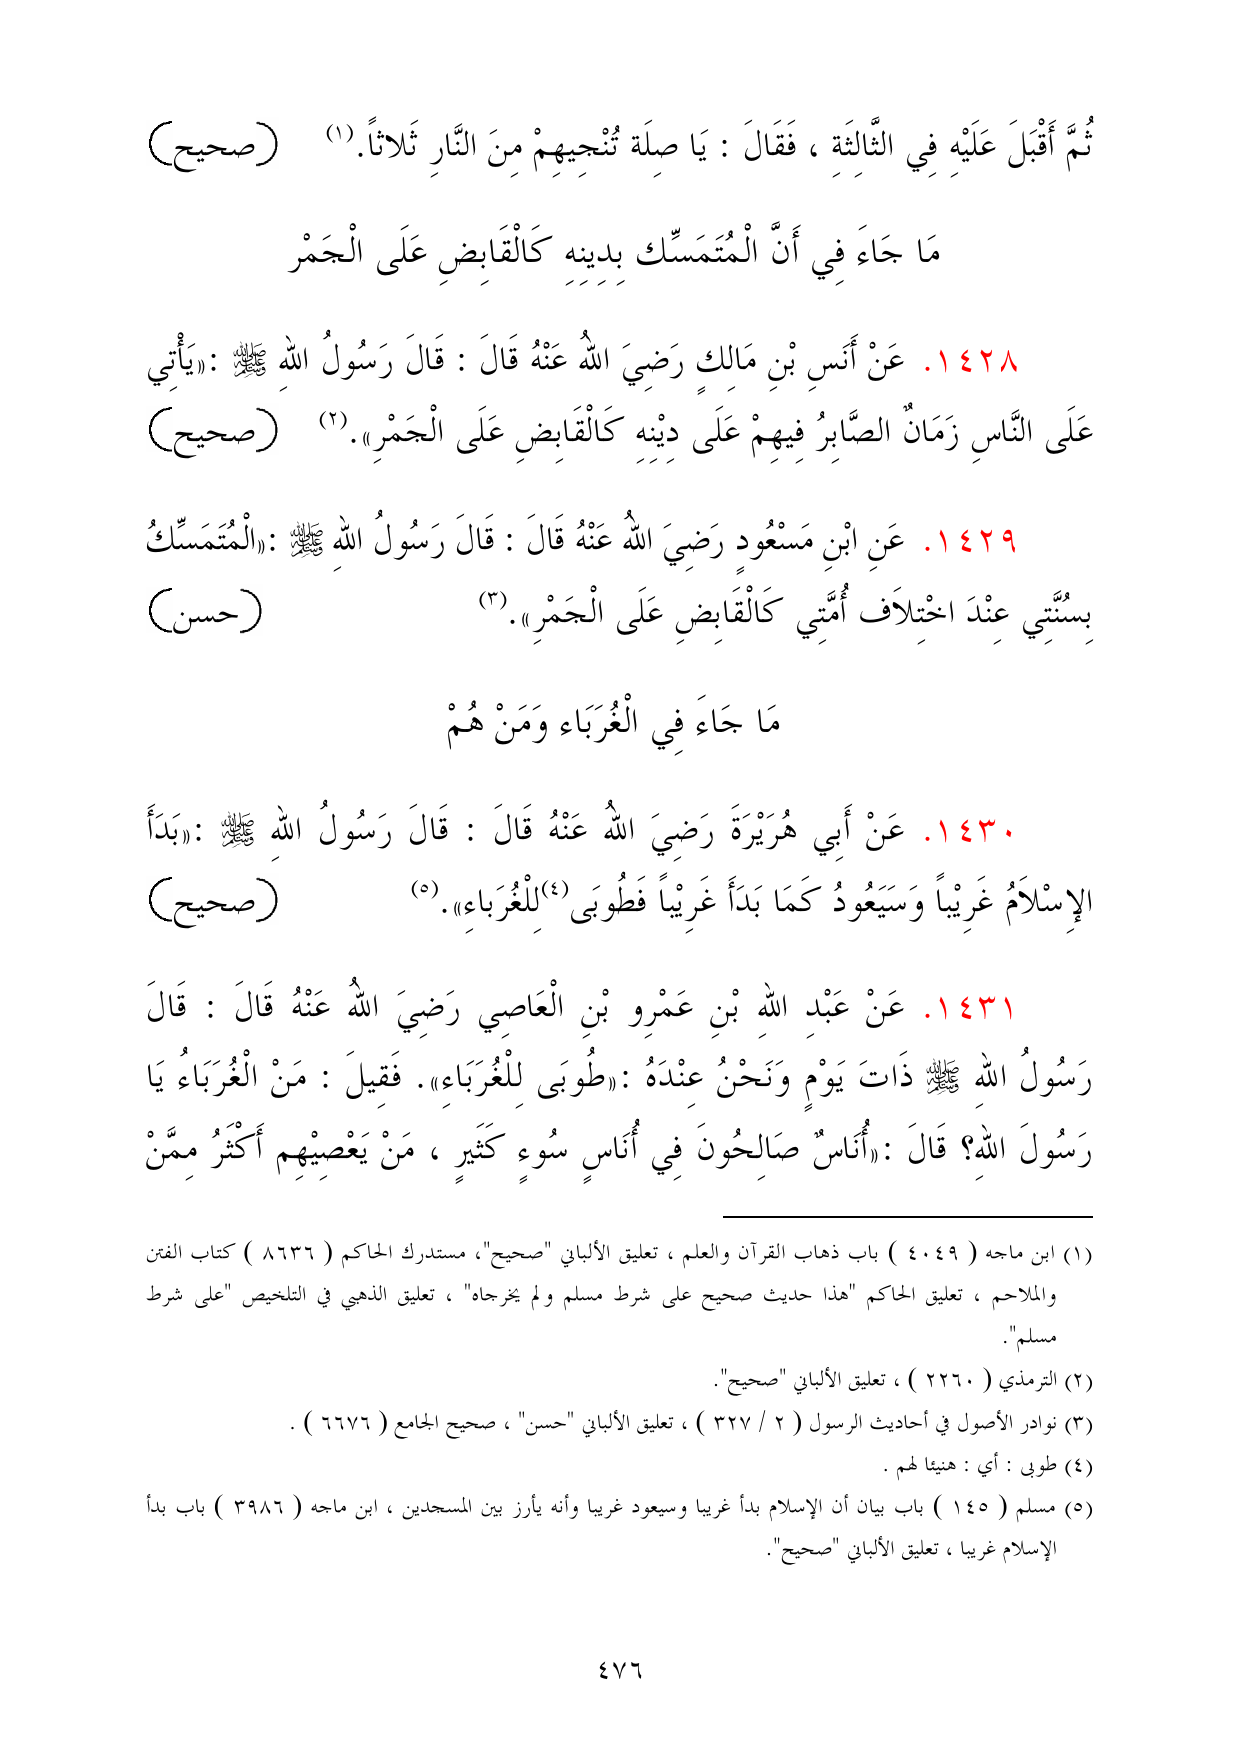 ثُمَّ أَقْبَلَ عَلَيْهِ فِي الثَّالِثَةِ ، فَقَالَ : يَا صِلَة تُنْجِيهِمْ مِنَ النَّارِ ثَلاثاً.(١) (صحيح)
مَا جَاءَ فِي أَنَّ الْمُتَمَسِّك بِدِينِهِ كَالْقَابِضِ عَلَى الْجَمْر
١٤٢٨. عَنْ أَنَسِ بْنِ مَالِكٍ رَضِيَ اللهُ عَنْهُ قَالَ : قَالَ رَسُولُ اللهِ ﷺ :«يَأْتِي
عَلَى النَّاسِ زَمَانٌ الصَّابِرُ فِيهِمْ عَلَى دِيْنِهِ كَالْقَابِضِ عَلَى الْجَمْرِ».(٢) (صحيح)
١٤٢٩. عَنِ ابْنِ مَسْعُودٍ رَضِيَ اللهُ عَنْهُ قَالَ : قَالَ رَسُولُ اللهِ ﷺ :«الْمُتَمَسِّكُ
بِسُنَّتِي عِنْدَ اخْتِلاَف أُمَّتِي كَالْقَابِضِ عَلَى الْجَمْرِ».(٣) (حسن)
مَا جَاءَ فِي الْغُرَبَاء وَمَنْ هُمْ
١٤٣٠. عَنْ أَبِي هُرَيْرَةَ رَضِيَ اللهُ عَنْهُ قَالَ : قَالَ رَسُولُ اللهِ ﷺ :«بَدَأَ
الإِسْلاَمُ غَرِيْباً وَسَيَعُودُ كَمَا بَدَأَ غَرِيْباً فَطُوبَى(٤)لِلْغُرَباءِ».(٥) (صحيح)
١٤٣١. عَنْ عَبْدِ اللهِ بْنِ عَمْرِو بْنِ الْعَاصِي رَضِيَ اللهُ عَنْهُ قَالَ : قَالَ
رَسُولُ اللهِ ﷺ ذَاتَ يَوْمٍ وَنَحْنُ عِنْدَهُ :«طُوبَى لِلْغُرَبَاءِ». فَقِيلَ : مَنْ الْغُرَبَاءُ يَا
رَسُولَ اللهِ؟ قَالَ :«أُنَاسٌ صَالِحُونَ فِي أُنَاسٍ سُوءٍ كَثَيرٍ ، مَنْ يَعْصِيْهِم أَكْثَرُ مِمَّنْ
(١) ابن ماجه ( ٤٠٤٩ ) باب ذهاب القرآن والعلم ، تعليق الألباني "صحيح"، مستدرك الحاكم ( ٨٦٣٦ ) كتاب الفتن
والملاحم ، تعليق الحاكم "هذا حديث صحيح على شرط مسلم ولم يخرجاه" ، تعليق الذهبي في التلخيص "على شرط
مسلم".
(٢) الترمذي ( ٢٢٦٠ ) ، تعليق الألباني "صحيح".
(٣) نوادر الأصول في أحاديث الرسول ( ٢ / ٣٢٧ ) ، تعليق الألباني "حسن" ، صحيح الجامع ( ٦٦٧٦ ) .
(٤) طوبى : أي : هنيئا لهم .
(٥) مسلم ( ١٤٥ ) باب بيان أن الإسلام بدأ غريبا وسيعود غريبا وأنه يأرز بين المسجدين ، ابن ماجه ( ٣٩٨٦ ) باب بدأ
الإسلام غريبا ، تعليق الألباني "صحيح".
٤٧٦